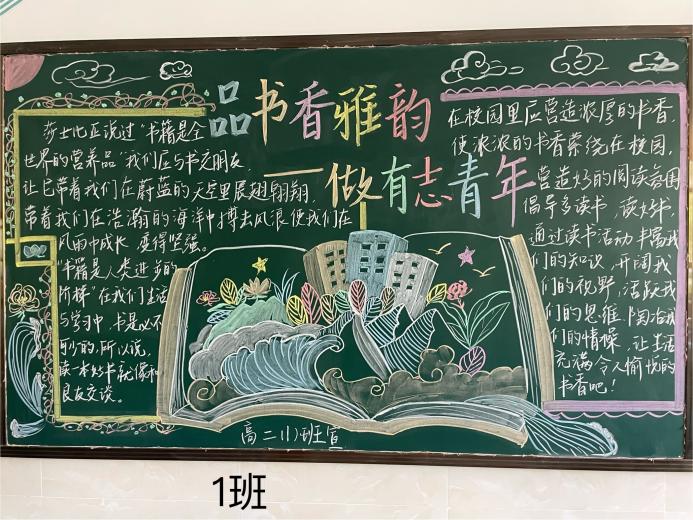 品书香雅韵
——做有志青年
莎士比亚说过"书籍是全
世界的营养品"我们应与书交朋友
让它带着我们在蔚蓝的天空里展翅翱翔,
带着我们在浩瀚的海洋中搏击风浪使我们在
风雨中成长 变得坚强。
"书籍是人类进步的
阶梯"在我们生活
与学习中,书是必不
可少的,所以说,
读一本好书就像和
良友交谈。
在校园里应营造浓厚的书香,
使浓浓的书香萦绕在校园,
营造好的阅读氛围
倡导多读书,读好书,
通过读书活动丰富我
们的知识,开阔我
们的视野,活跃我
们的思维 陶冶我
们的情操,让生活
充满令人愉悦的
书香吧!
高二(1)班宣
1班